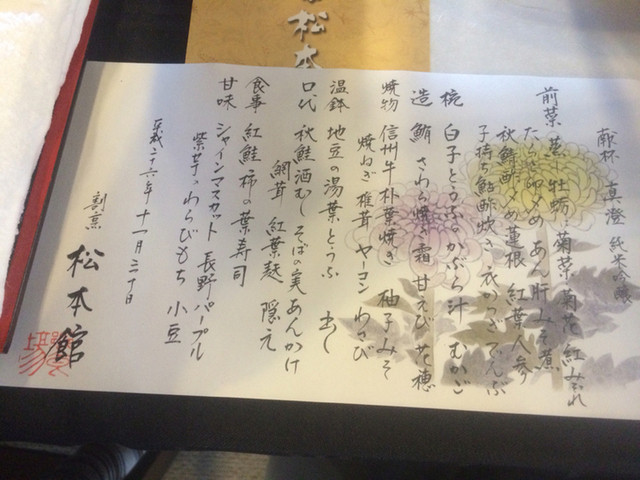 松本
献杯 真澄 純米吟醸
前菜 燻 牡蠣 菊菜 菊花 紅みぞれ
たらこ昆布〆 あん肝みそ煮
秋鯖酢〆蓮根 紅葉人参
子持ち鮎酢炊き 衣かつぎでんぶ
椀 白子とうふのかぶら汁 むかご
造 鮪 さわら焼き霜 甘えび 花穂
焼物 信州牛朴葉焼き 柚子みそ
焼ねぎ 椎茸 ヤーコン わさび
温鉢 地豆の湯葉とうふ
口代 秋鮭酒むし そばの実あんかけ
網茸 紅葉麩 隠元
食事 紅鮭 柿の葉寿司
甘味 シャインマスカット 長野パープル
紫芋のわらびもち 小豆
平成二十六年十一月三十日
割烹 松本館